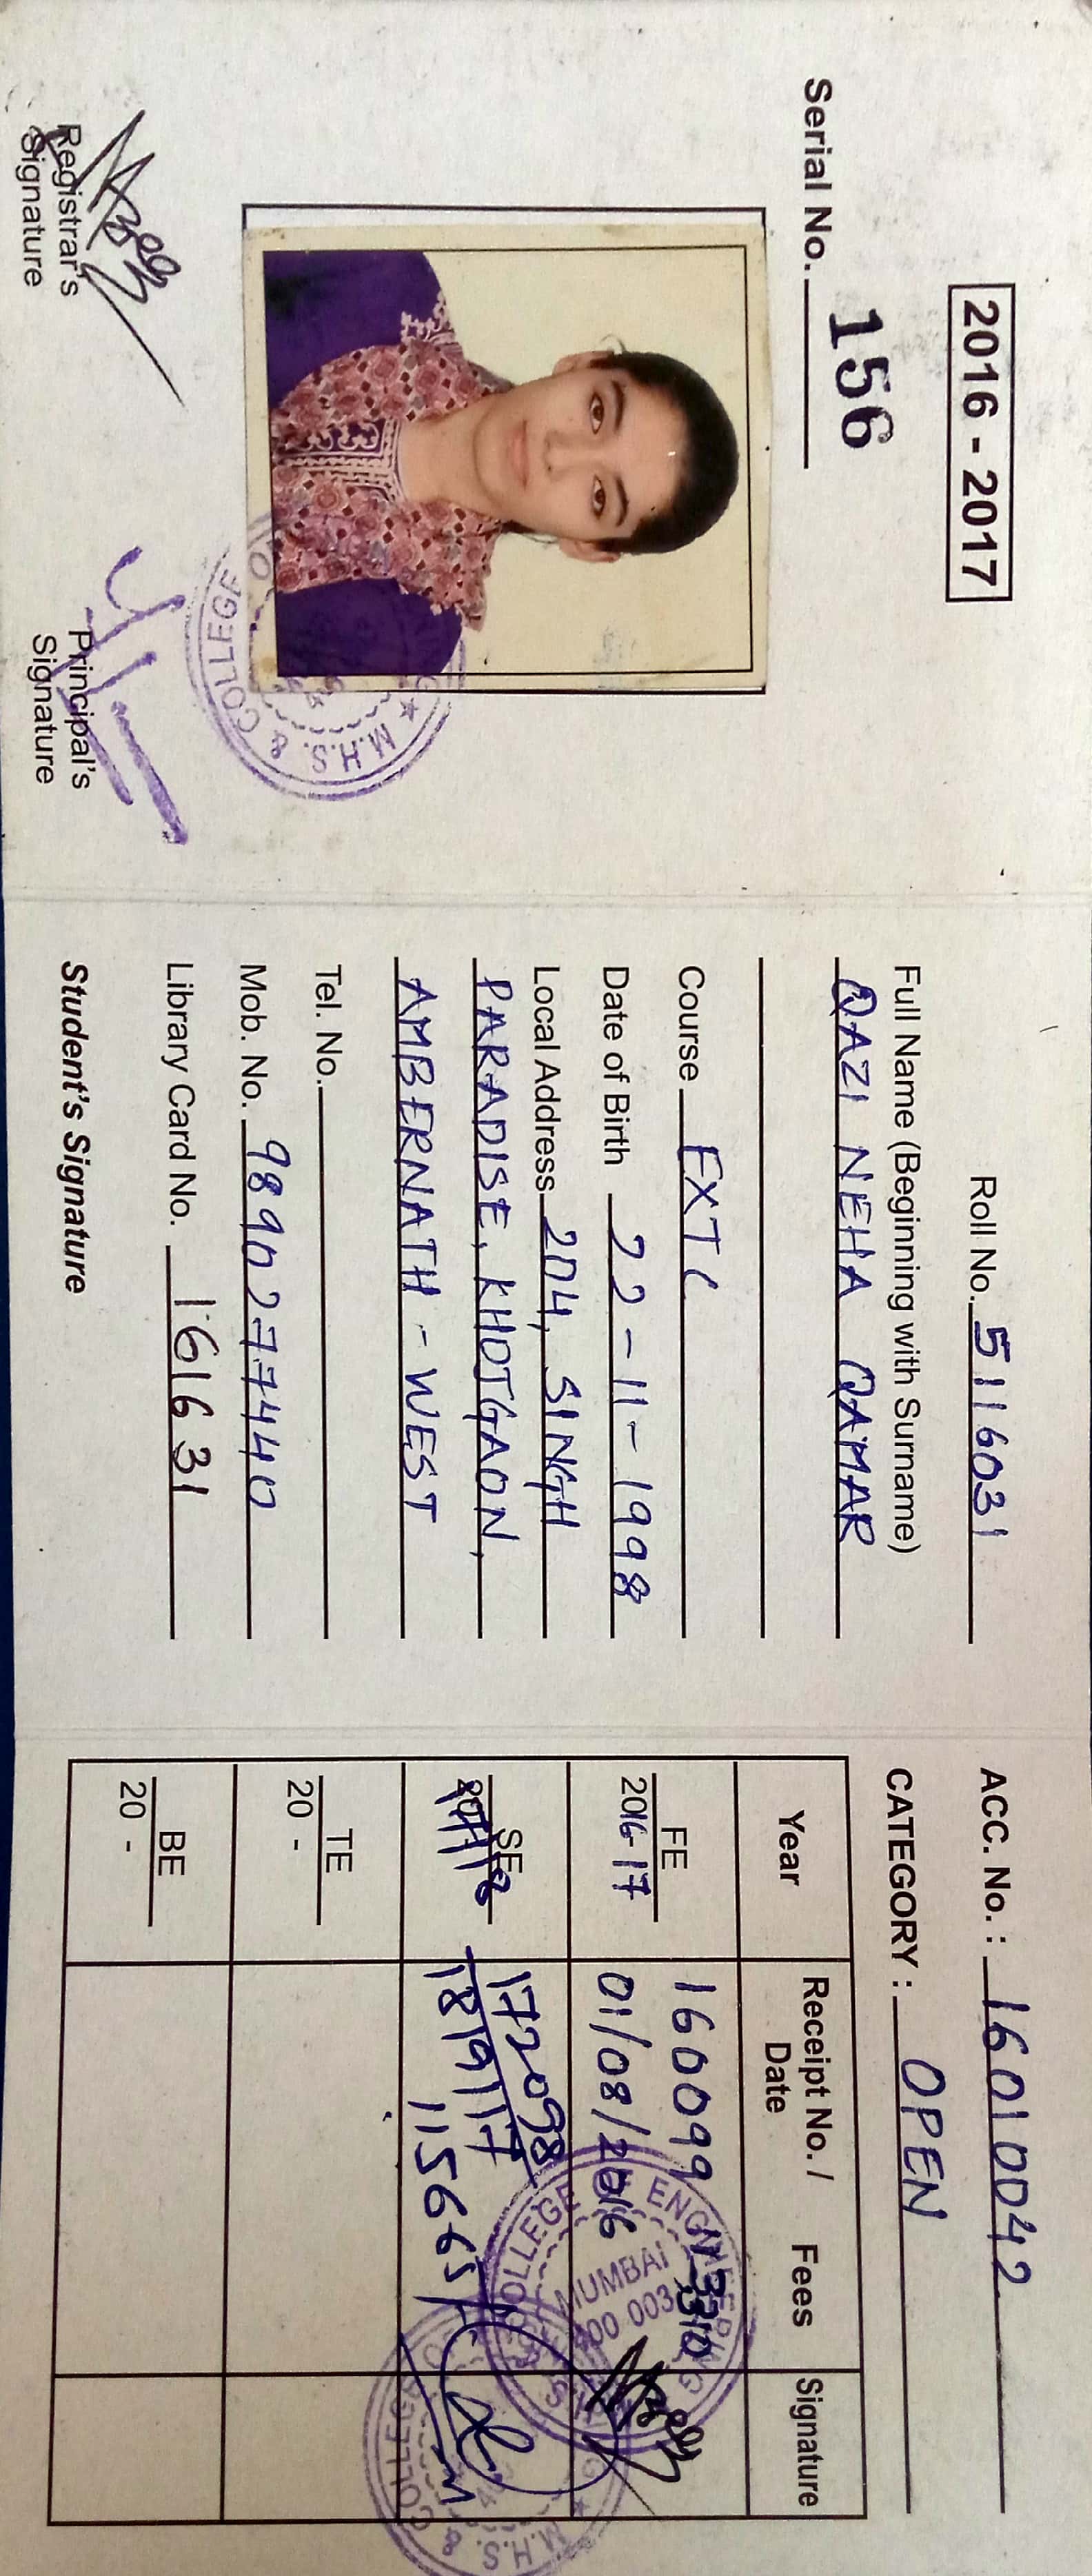 2016 - 2017
Serial No. 156
COLLEGE
M.H.S. &
Registrar's Signature
Principal's Signature
Roll No. 5116031
Full Name (Beginning with Surname)
QAZI NEHA QAMAR
Course EXTC
Date of Birth 22-11-1998
Local Address 204, SINGH
PARADISE, KHOTGAON,
AMBERNATH - WEST
Tel. No.
Mob. No. 9890277440
Library Card No. 161631
Student's Signature
ACC. No. : 16010042
CATEGORY : OPEN
Year Receipt No. / Date Fees Signature
FE 160099
2016-17 01/08/2016
SE 172098
18/9/17 115665/-
TE
20 -
BE
20 -
COLLEGE
MUMBAI
400 003
M.H.S. &
COLLEGE